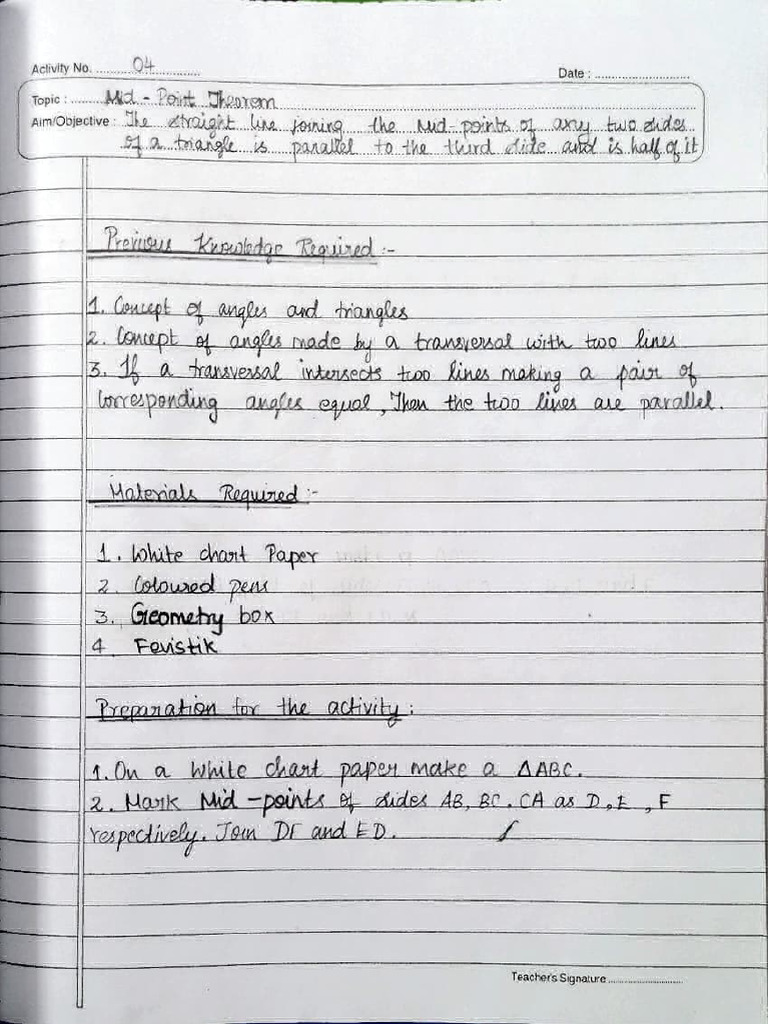 Activity No. 04
Date :
Topic : Mid - Point Theorem
Aim/Objective : The straight line joining the Mid-points of any two sides
of a triangle is parallel to the third side and is half of it
Previous Knowledge Required :-
1. Concept of angles and triangles
2. Concept of angles made by a transversal with two lines
3. If a transversal intersects two lines making a pair of
corresponding angles equal, Then the two lines are parallel.
Materials Required :-
1. White chart Paper
2. Coloured pens
3. Geometry box
4. Fevistik
Preparation for the activity :
1. On a White chart paper make a △ABC.
2. Mark Mid-points of sides AB, BC. CA as D, E, F
respectively. Join DF and ED.
Teacher's Signature